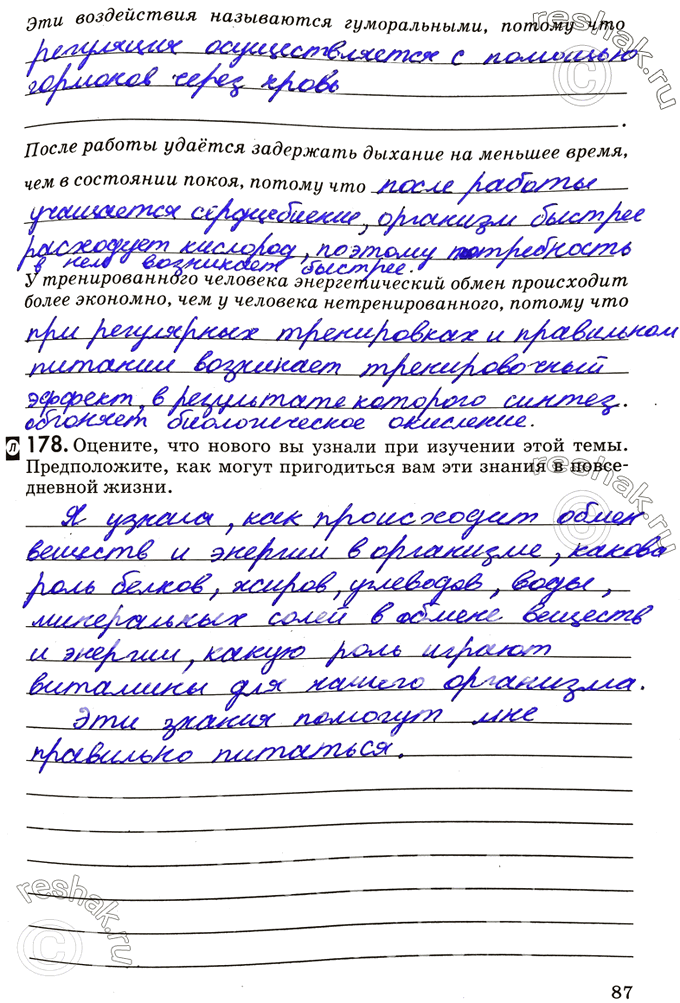 Эти воздействия называются гуморальными, потому что
регуляция осуществляется с помощью
гормонов через кровь
.
После работы удаётся задержать дыхание на меньшее время,
чем в состоянии покоя, потому что после работы
учащается сердцебиение, организм быстрее
расходует кислород, поэтому потребность
в нем возникает быстрее.
У тренированного человека энергетический обмен происходит
более экономно, чем у человека нетренированного, потому что
при регулярных тренировках и правильном
питании возникает тренировочный
эффект, в результате которого синтез.
обгоняет биологическое окисление.
л 178. Оцените, что нового вы узнали при изучении этой темы.
Предположите, как могут пригодиться вам эти знания в повсе-
дневной жизни.
Я узнала, как происходит обмен
веществ и энергии в организме, какова
роль белков, жиров, углеводов, воды,
минеральных солей в обмене веществ
и энергии, какую роль играют
витамины для нашего организма.
Эти знания помогут мне
правильно питаться.
87
reshak.ru
reshak.ru
reshak.ru
reshak.ru